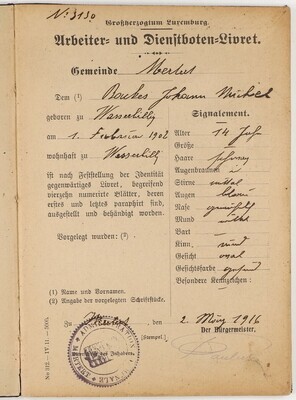 No 3130
Großherzogtum Luxemburg.
Arbeiter- und Dienstboten-Livret.
Gemeinde Mertert
Dem (1) Backes Johann Michael
geboren zu Wasserbillig
am 1. Februar 1902
wohnhaft zu Wasserbillig
ist nach Feststellung der Identität
gegenwärtiges Livret, begreifend
vierzehn numerirte Blätter, deren
erstes und letztes paraphirt sind,
ausgestellt und behändigt worden.
Vorgelegt wurden: (2)
Signalement.
Alter 14 Jahr
Größe
Haare schwarz
Augenbrauen
Stirne mittel
Augen blau
Nase gewöhnlich
Mund
Bart —
Kinn, rund
Gesicht oval
Gesichtsfarbe gesund
Besondere Kennzeichen:
(1) Name und Vornamen.
(2) Angabe der vorgelegten Schriftstücke.
Zu Mertert, den 2 März 1916
Unterschrift des Inhabers,
[Stempel.]
Der Bürgermeister,
ADMINISTRATION COMMUNALE
MERTERT